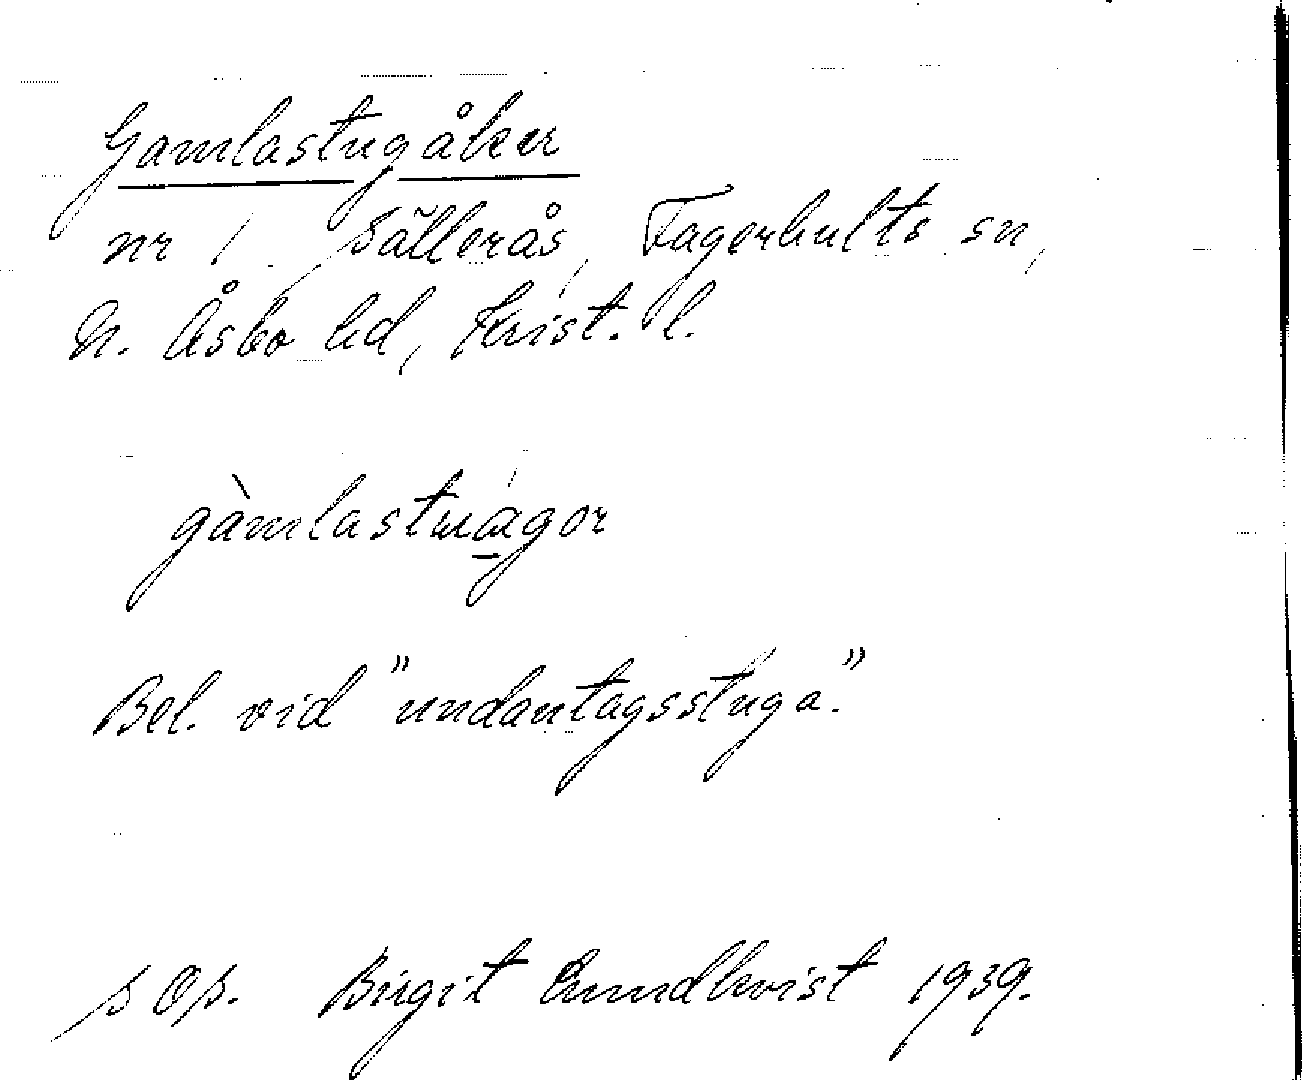 Gamlastugåker
nr 1 Sällerås, Fagerhults sn,
N. Åsbo hd, Krist. l.
gàmlastuágor
Bel. vid "undantagsstuga."
Birgit Lundkvist 1939.